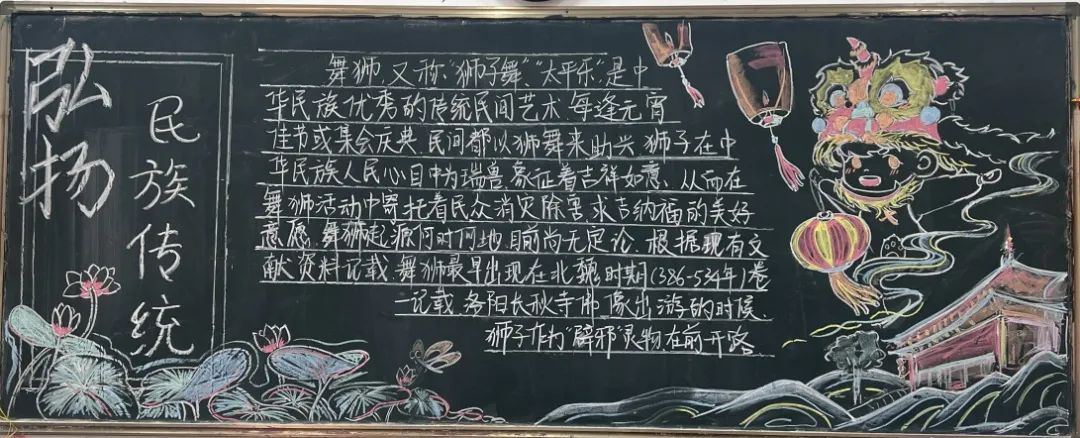 弘扬
民族传统
舞狮,又称“狮子舞”、“太平乐”,是中
华民族优秀的传统民间艺术,每逢元宵
佳节或集会庆典,民间都以狮舞来助兴,狮子在中
华民族人民心目中为瑞兽,象征着吉祥如意,从而在
舞狮活动中寄托着民众消灾除害、求吉纳福的美好
意愿,舞狮起源何时何地,目前尚无定论,根据现有文
献资料记载,舞狮最早出现在北魏时期(386-534年)卷
一记载,洛阳长秋寺佛像出游的时候,
狮子作为“辟邪”灵物在前开路